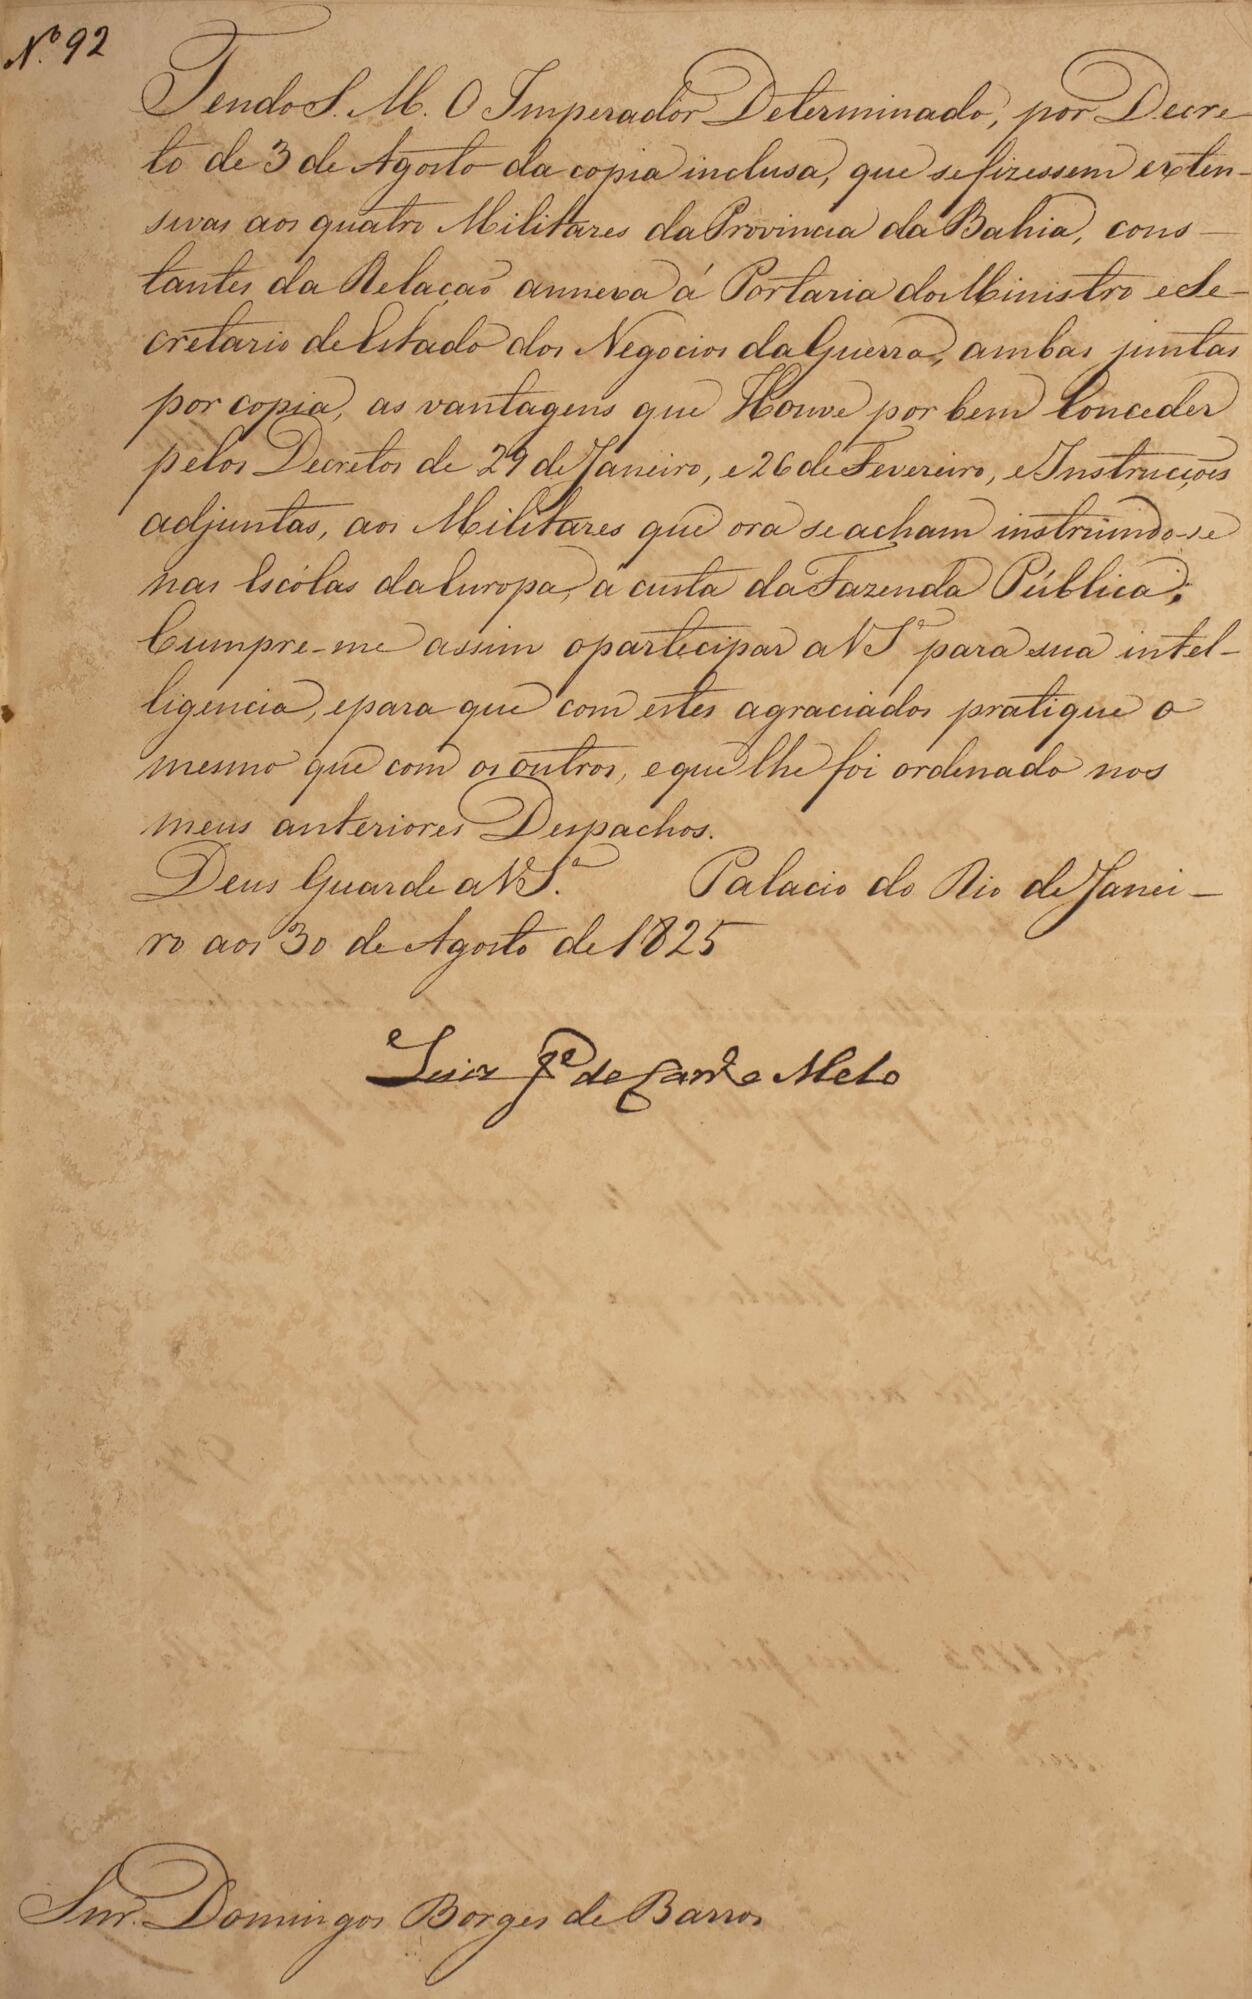 Nº 92
Tendo S. M. O Imperador Determinado, por Decre-
to de 3 de Agosto da copia inclusa, que se fizessem exten-
sivas aos quatro Militares da Provincia da Bahia, cons-
tantes da Relação annexa á Portaria do Ministro e Se-
cretario de Estado dos Negocios da Guerra, ambas juntas
por copia, as vantagens que Houve por bem Conceder
pelos Decretos de 29 de Janeiro, e 26 de Fevereiro, e Instrucções
adjuntas, aos Militares que ora se acham instruindo-se
nas Escólas da Europa, á custa da Fazenda Pública;
Cumpre-me assim o partecipar a V Sª para sua intel-
ligencia, e para que com estes agraciados pratique o
mesmo que com os outros, e que lhe foi ordenado nos
meus anteriores Despachos.
Deus Guarde a V S.ª Palacio do Rio de Janei-
ro aos 30 de Agosto de 1825
Luiz Jᵉ de Carvº e Melo
Snr. Domingos Borges de Barros